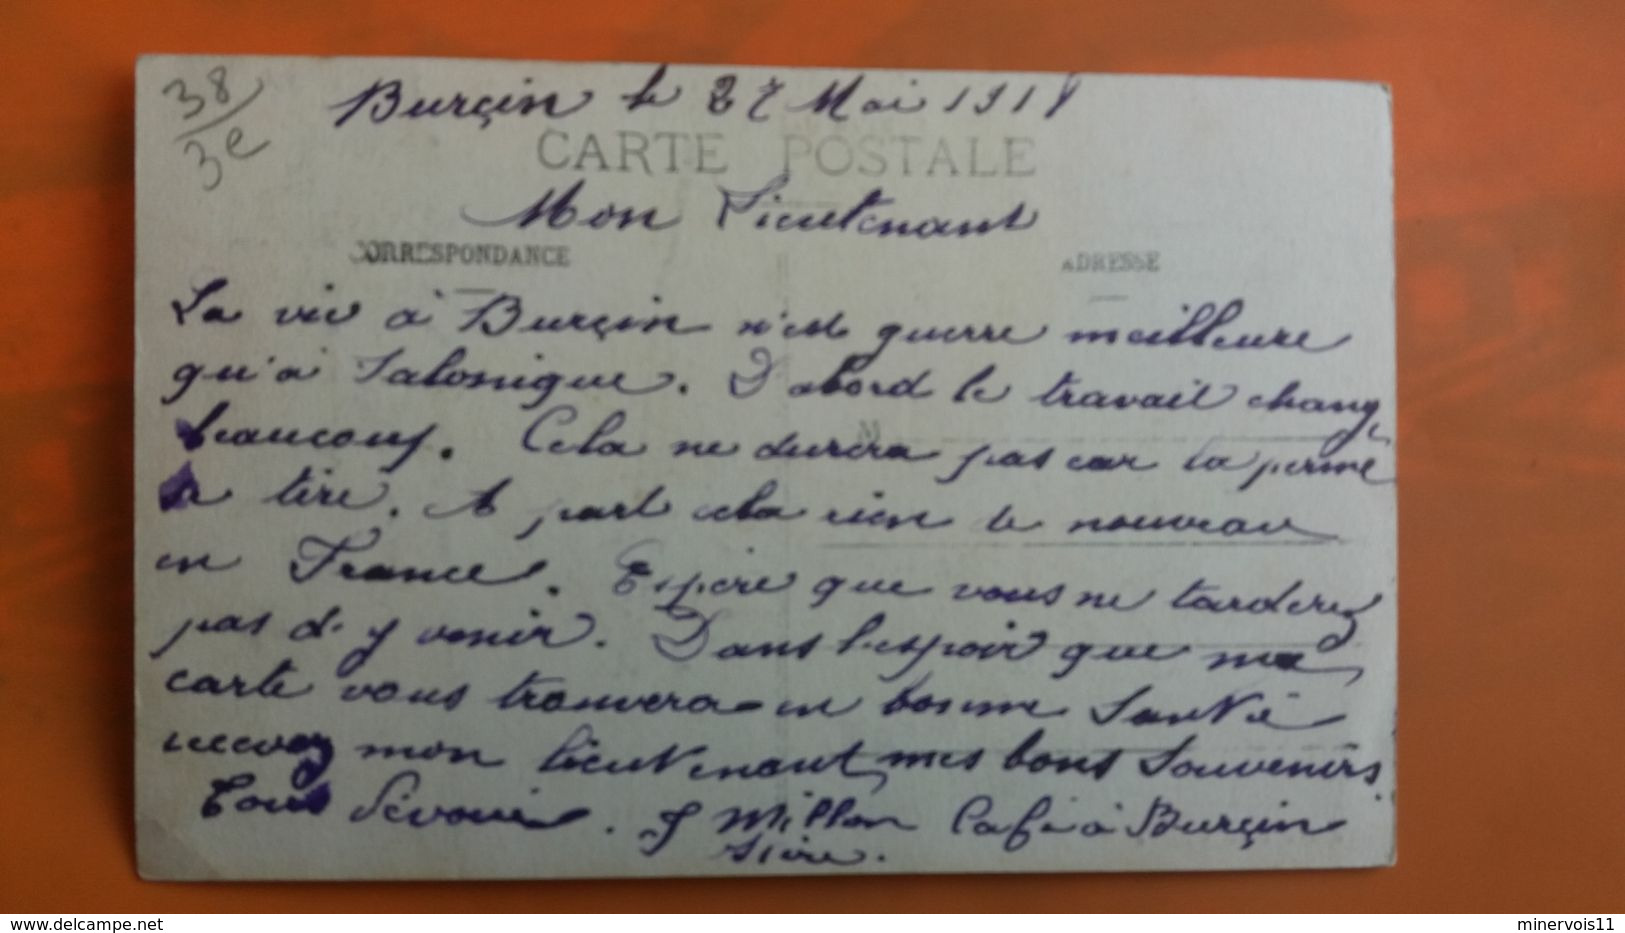 38
3e
Burçin le 27 Mai 1918
CARTE POSTALE
Mon Lieutenant
CORRESPONDANCE
ADRESSE
La vie à Burçin n'est guerre meilleure
qu'à Salonique. D'abord le travail change
beaucoup. Cela ne durera pas car la perme
se tire. A part cela rien de nouveau
en France. Espère que vous ne tarderez
pas d'y venir. Dans l'espoir que ma
carte vous trouvera en bonne Santé
recevez mon lieutenant mes bons Souvenirs.
Tout Dévoué. J Millon Café à Burçin
Isère.
minervois11